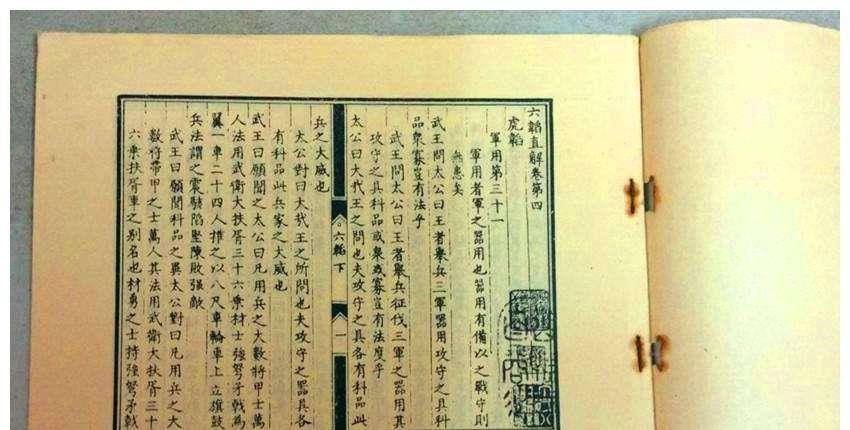 六韜直解卷第四
虎韜
軍用第三十一
軍用者軍之器用也器用有備以之戰守則
無患矣
武王問太公曰王者舉兵三軍器用攻守之具科
品衆寡豈有法乎
武王問太公曰王者舉兵征伐三軍之器用其
攻守之具科品或衆或寡豈有法度乎
太公曰大哉王之問也夫攻守之具各有科品此
六韜下
一
兵之大威也
太公對曰大哉王之所問也夫攻守之器具各
有科品此兵家之大威也
武王曰願聞之太公曰凡用兵之大數將甲士萬
人法用武衛大扶胥三十六乘材士強弩矛戟為
翼一車二十四人推之以八尺車輪車上立旗鼓
兵法謂之震駭陷堅陳敗强敵
武王曰願聞科品之異太公對曰凡用兵之大
數將帶甲之士萬人其法用武衛大扶胥三十
六乘扶胥車之别名也材勇之士持強弩矛戟